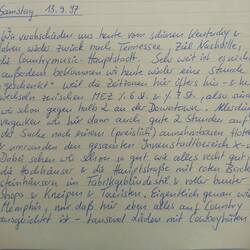 Samstag 13.9.97
Wir verabschieden uns heute vom schönen Kentucky &
fahren wieder zurück nach Tennessee, Ziel Nashville,
die Countrymusic-Hauptstadt. Sehr weit ist es nicht
außerdem bekommen wir heute wieder eine Stunde
"geschenkt" weil die Zeitzonen hier öfters hin- & her
wechseln zwischen MEZ % 6 St. & % 7 St., also sind
wir schon gegen halb 2 an der Downtown. Allerdings
vergeuden wir hier dann auch gute 2 Stunden auf
der Suche nach einem (preislich) annehmbaren Hotel
& umrunden den gesamten Innenstadtbereich x-mal
Dabei sehen wir schon so gut wie alles recht gut,
die Hochhäuser & die Hauptstraße mit roten Back-
steinhäusern im Fabrikgebäudestil & voller bunter
Shops & Kneipen & Touristen. Eigentlich genau wie
Memphis, nur daß hier eben alles auf Country
ausgerichtet ist - tausend Läden mit Cowboyhüten